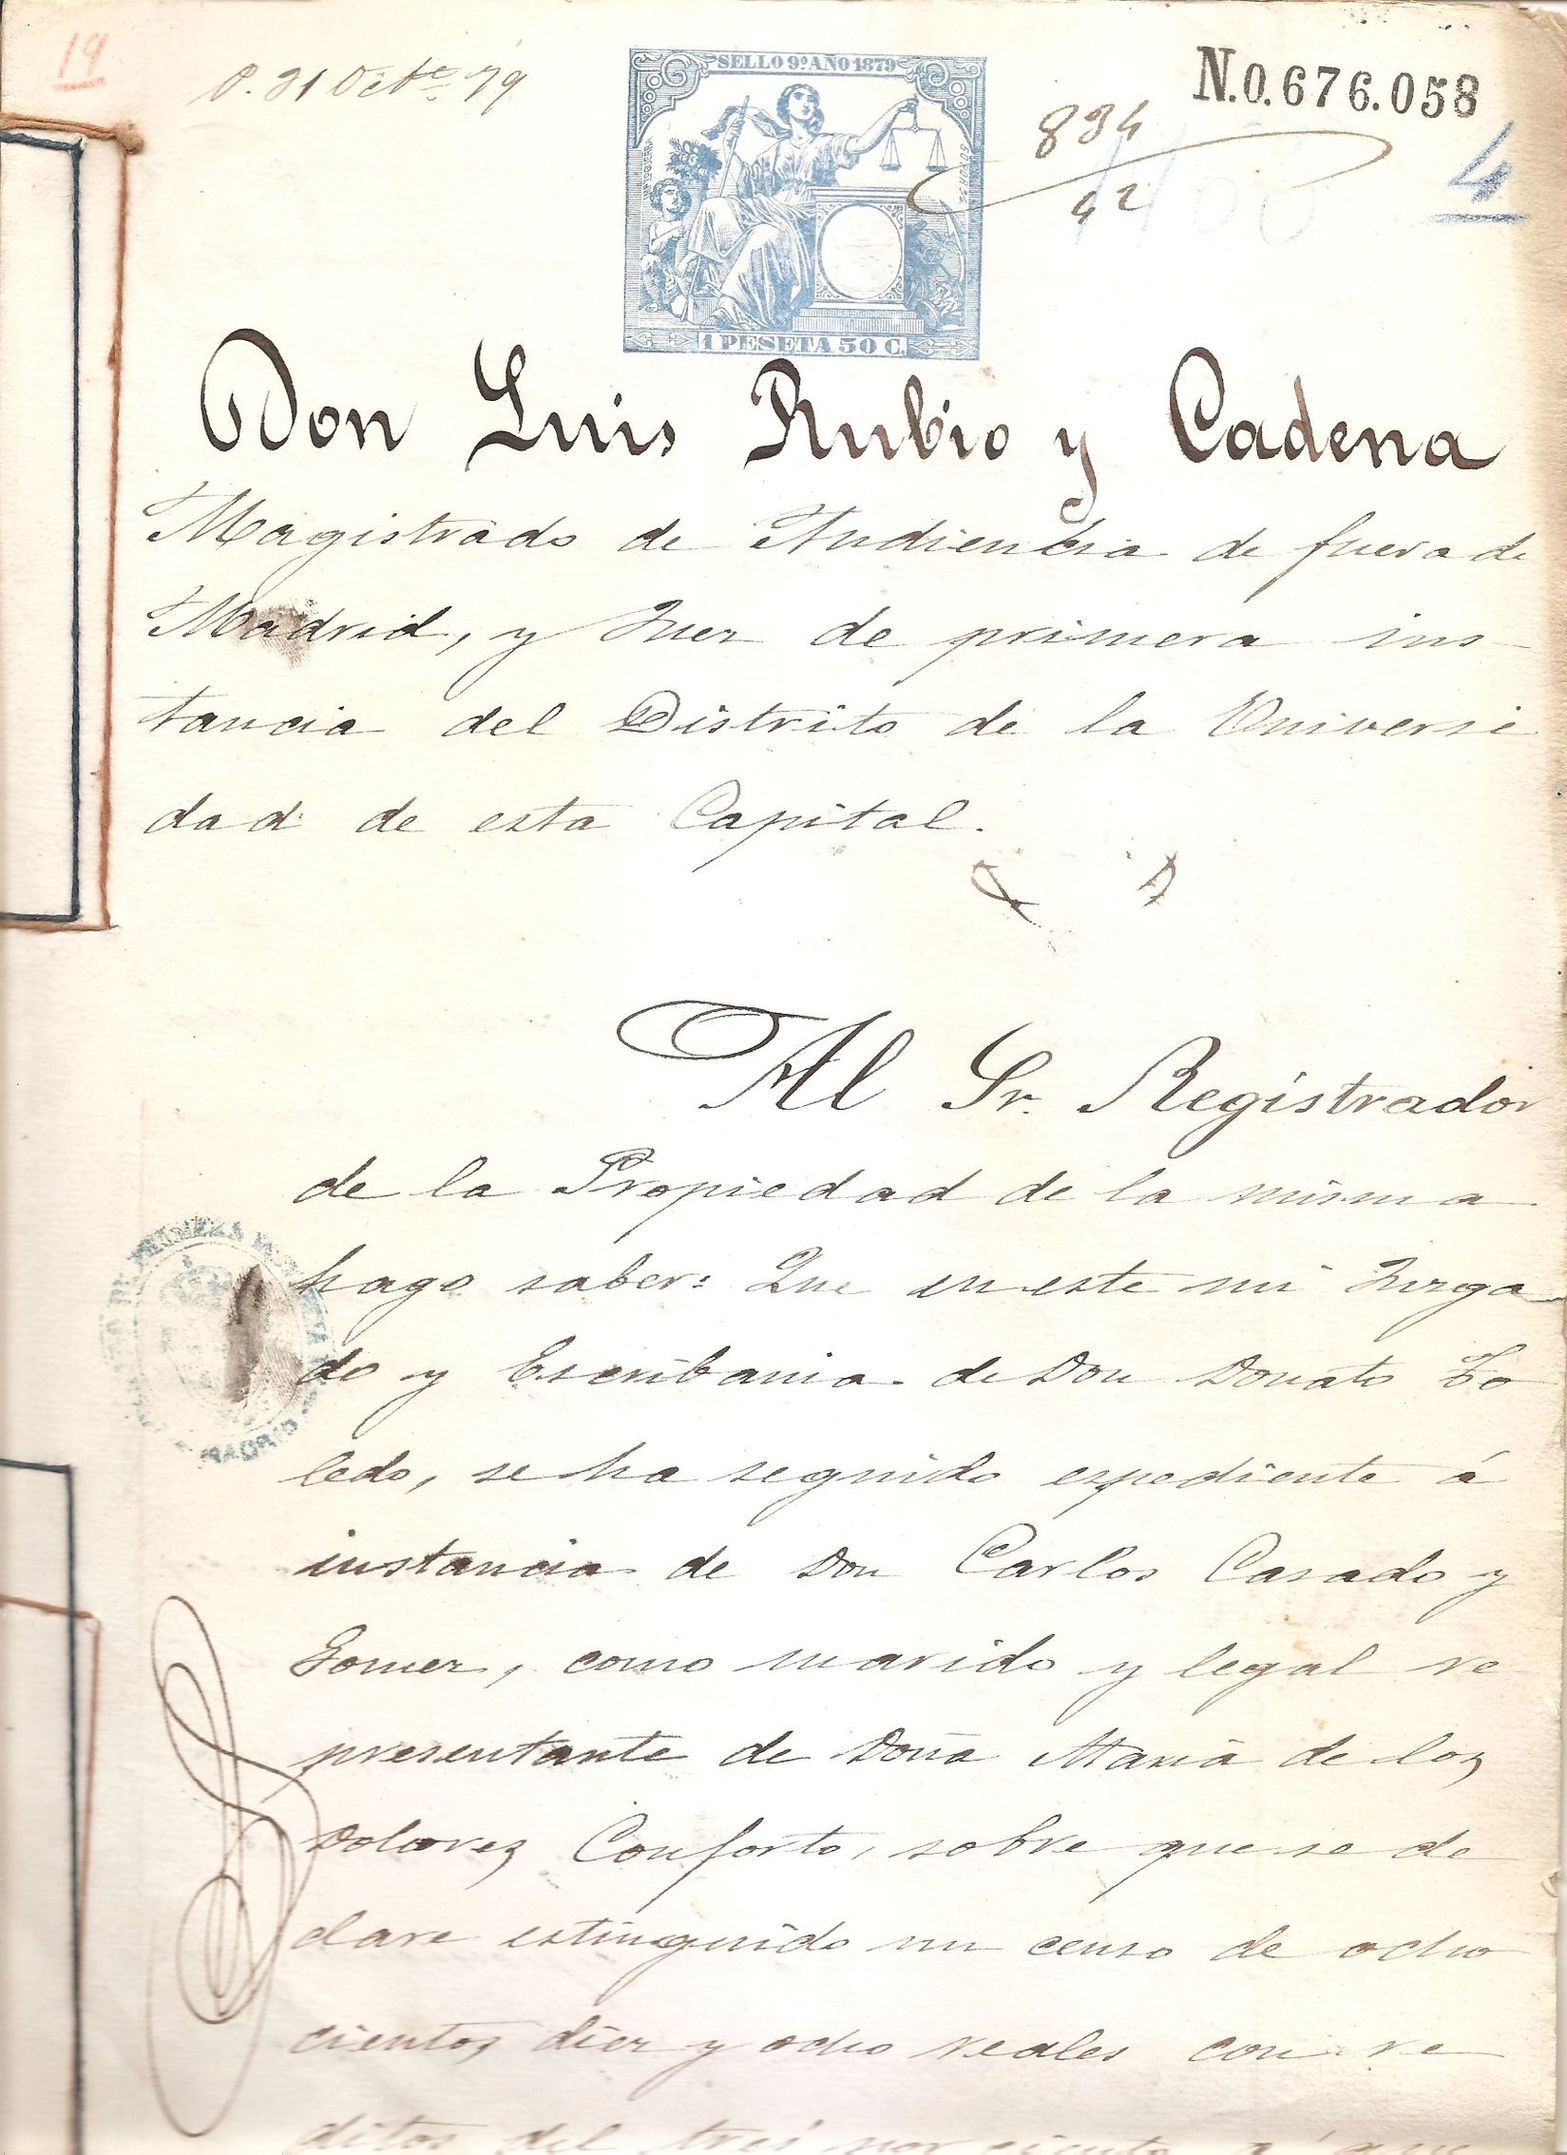 19
P. 31 Octe. 79
SELLO 9º AÑO 1879
N.0.676.058
894
42
1100
4
1 PESETA 50 C.
Don Luis Rubio y Cadena
Magistrado de Audiencia de fuera de
Madrid, y Juez de primera ins
tancia del Distrito de la Universi
dad de esta Capital.
Al Sr. Registrador
de la Propiedad de la misma
hago saber: Que en este mi Juzga
do y Escribania de Don Donato To
ledo, se ha seguido espediente á
instancia de Don Carlos Casado y
Gomez, como marido y legal re
presentante de Doña Maria de los
Dolores Conforto, sobre que se de
clare estinguido un censo de ocho
cientos diez y ocho reales con re
ditos del tres por ciento
DE PRIMERA INSTANCIA
MADRID